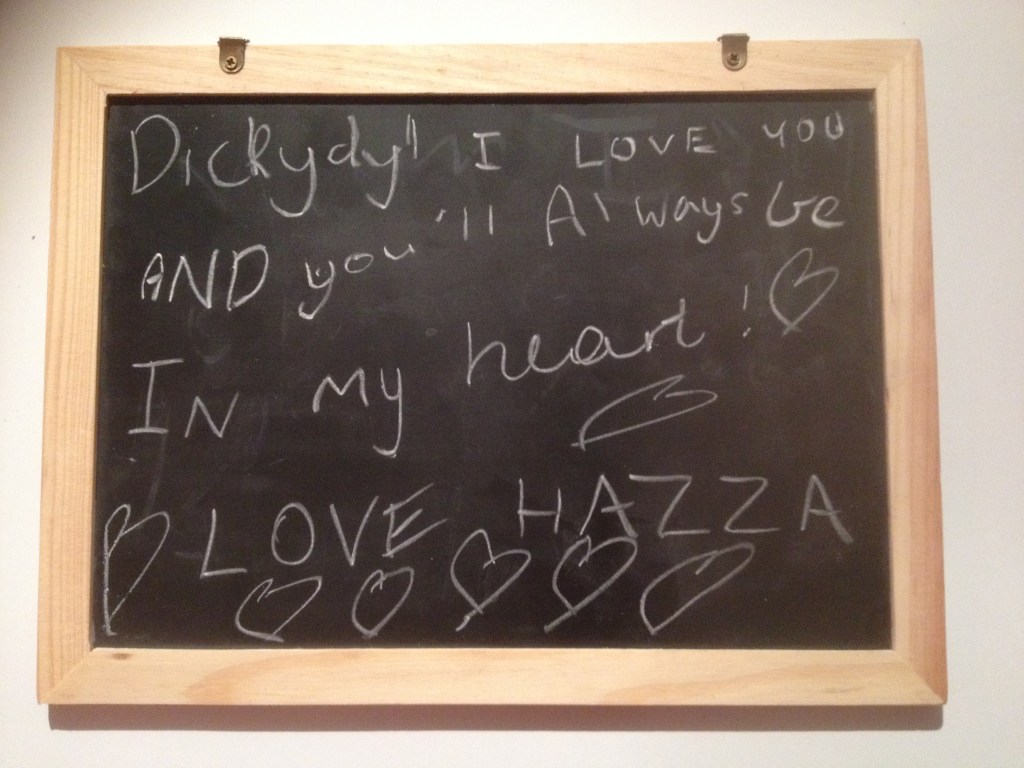 Dickydy! I LOVE YOU
AND you'll Always be
IN my heart!
LOVE HAZZA